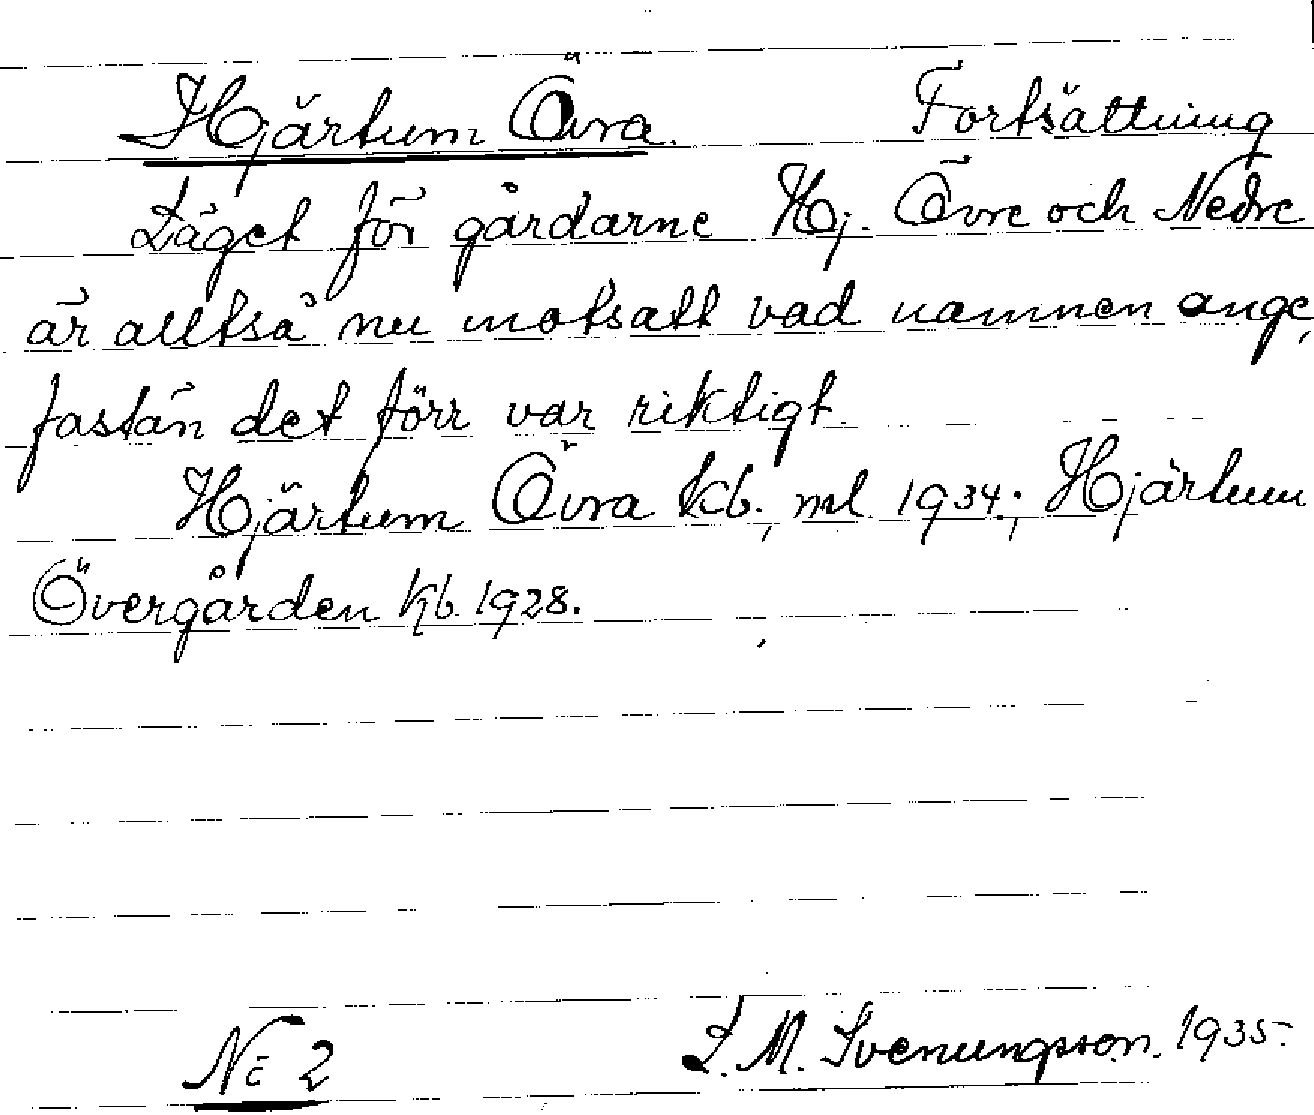 Hjärtum Övra. Fortsättning
Läget för gårdarne Hj. Övre och Nedre
är alltså nu motsatt vad namnen ange,
fastän det förr var riktigt.
Hjärtum Övra kb., ml 1934.; Hjärtum
Övergården kb. 1928.
No 2 L. M. Svenungsson. 1935.